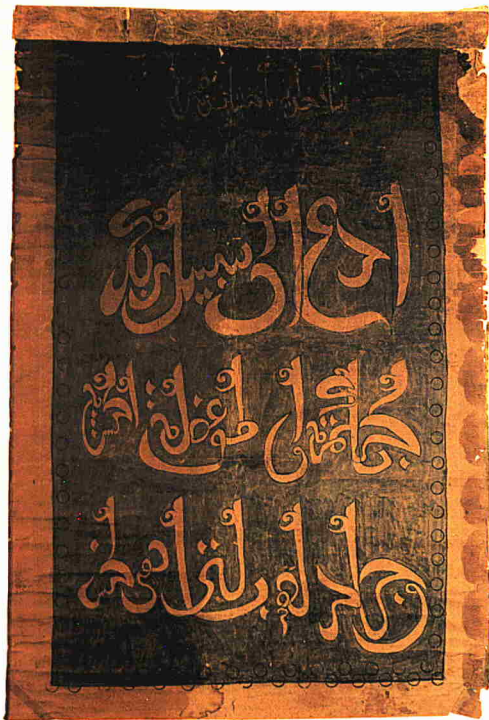 ادع الى سبيل ربك
بالحكمة والموعظة الحسنة
وجادلهم بالتي هي احسن